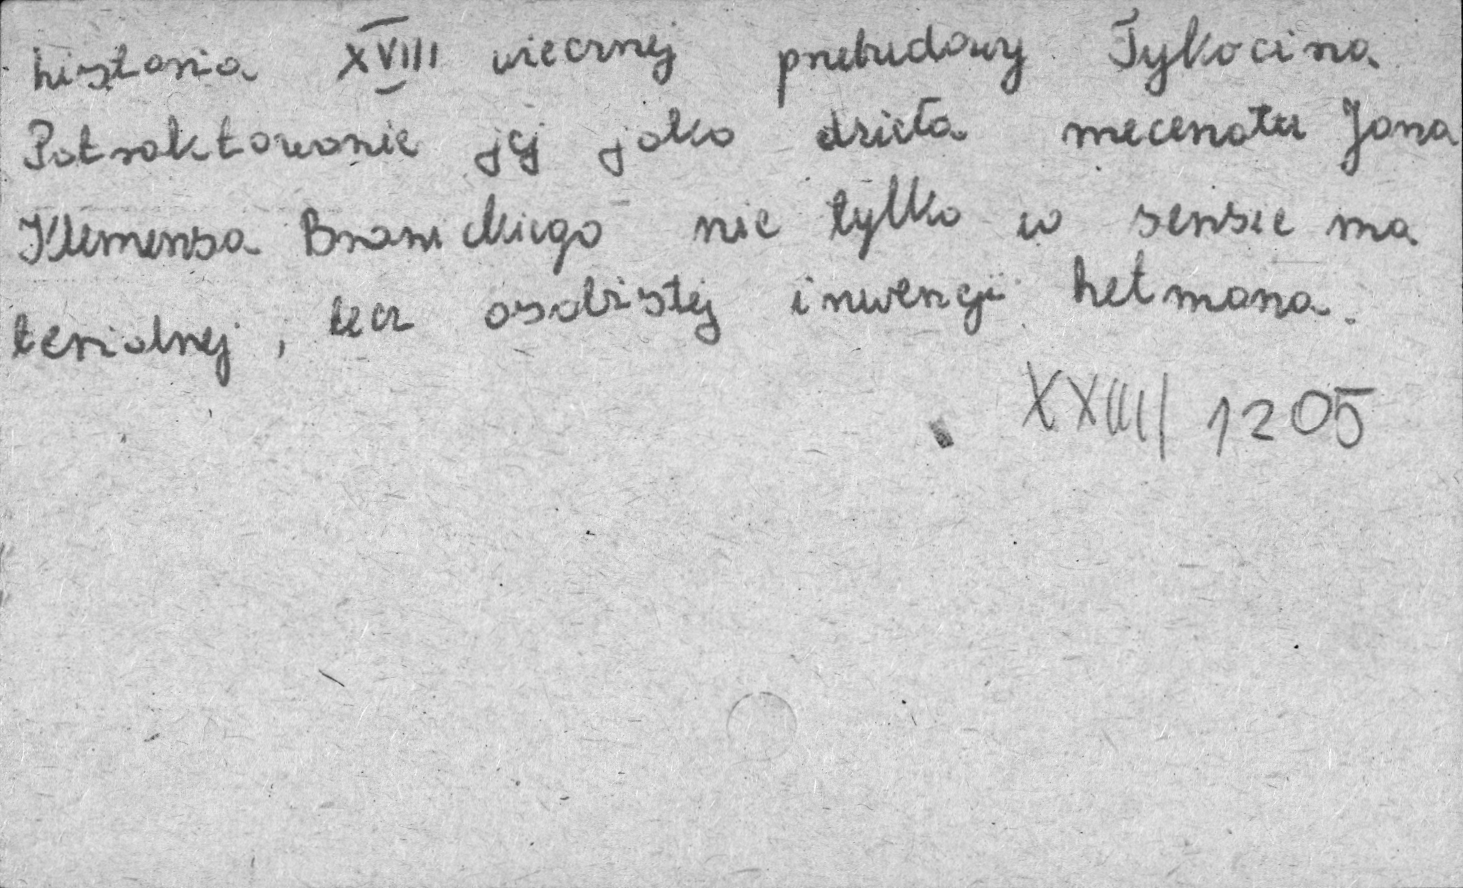 historia XVIII wiecznej przebudowy Tykocina
Potraktowanie jej jako dzieła mecenatu Jana
Klemensa Branickiego nie tylko w sensie ma
terialnej, lecz osobistej inwencji hetmana.
XXIII/1205